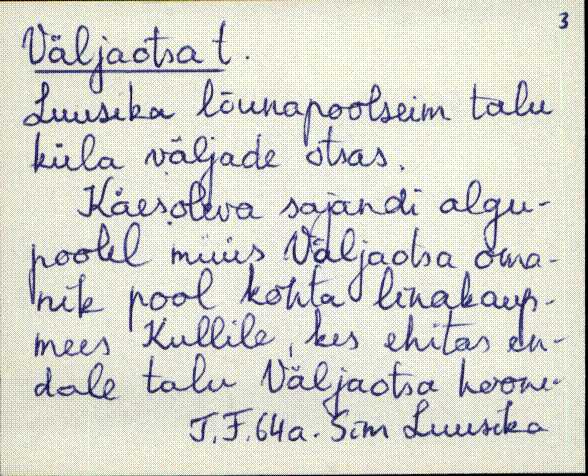 3
Väljaotsa t.
Luusika lõunapoolseim talu
küla väljade otsas.
Käesoleva sajandi algu-
poolel müüs Väljaotsa oma-
nik pool kohta linakaup-
mees Kullile, kes ehitas en-
dale talu Väljaotsa hoone-
J.F. 64a. Sim Luusika